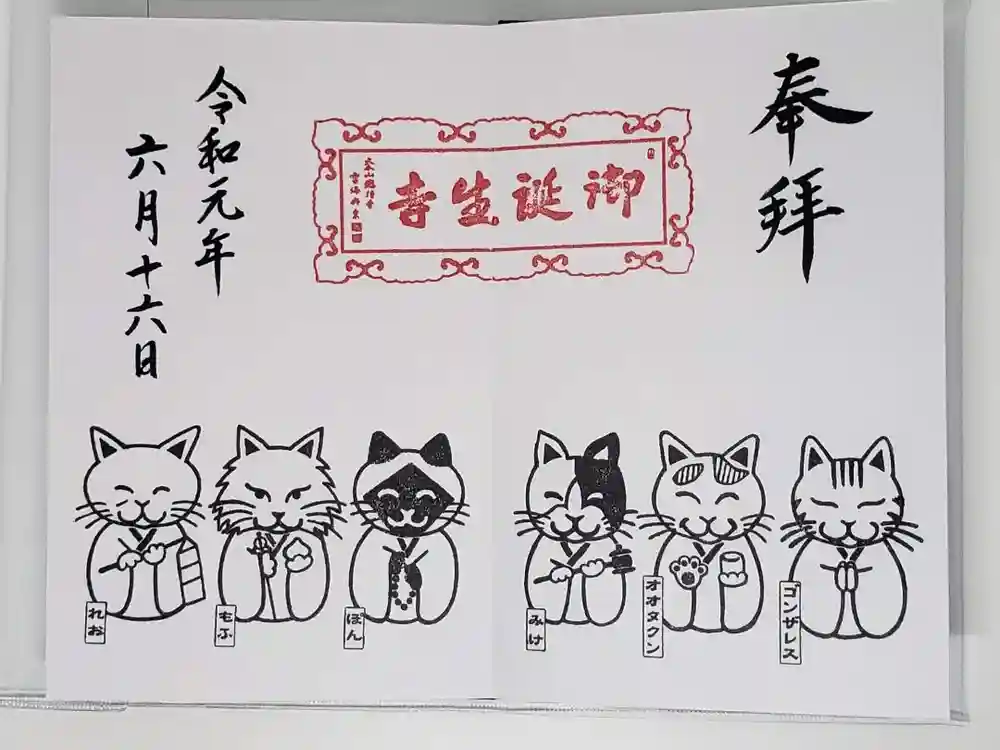 奉拝
御誕生寺
令和元年
六月十六日
ゴンザレス
オオタクン
みけ
ぽん
もふ
れお